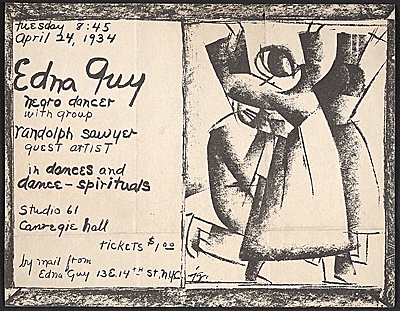 Tuesday 8:45
April 24, 1934
Edna Guy
negro dancer
with group
randolph sawyer
guest artist
in dances and
dance-spirituals
Studio 61
Carnegie hall
tickets $1.00
by mail from
Edna Guy 13 E. 14TH St, N.Y.C.